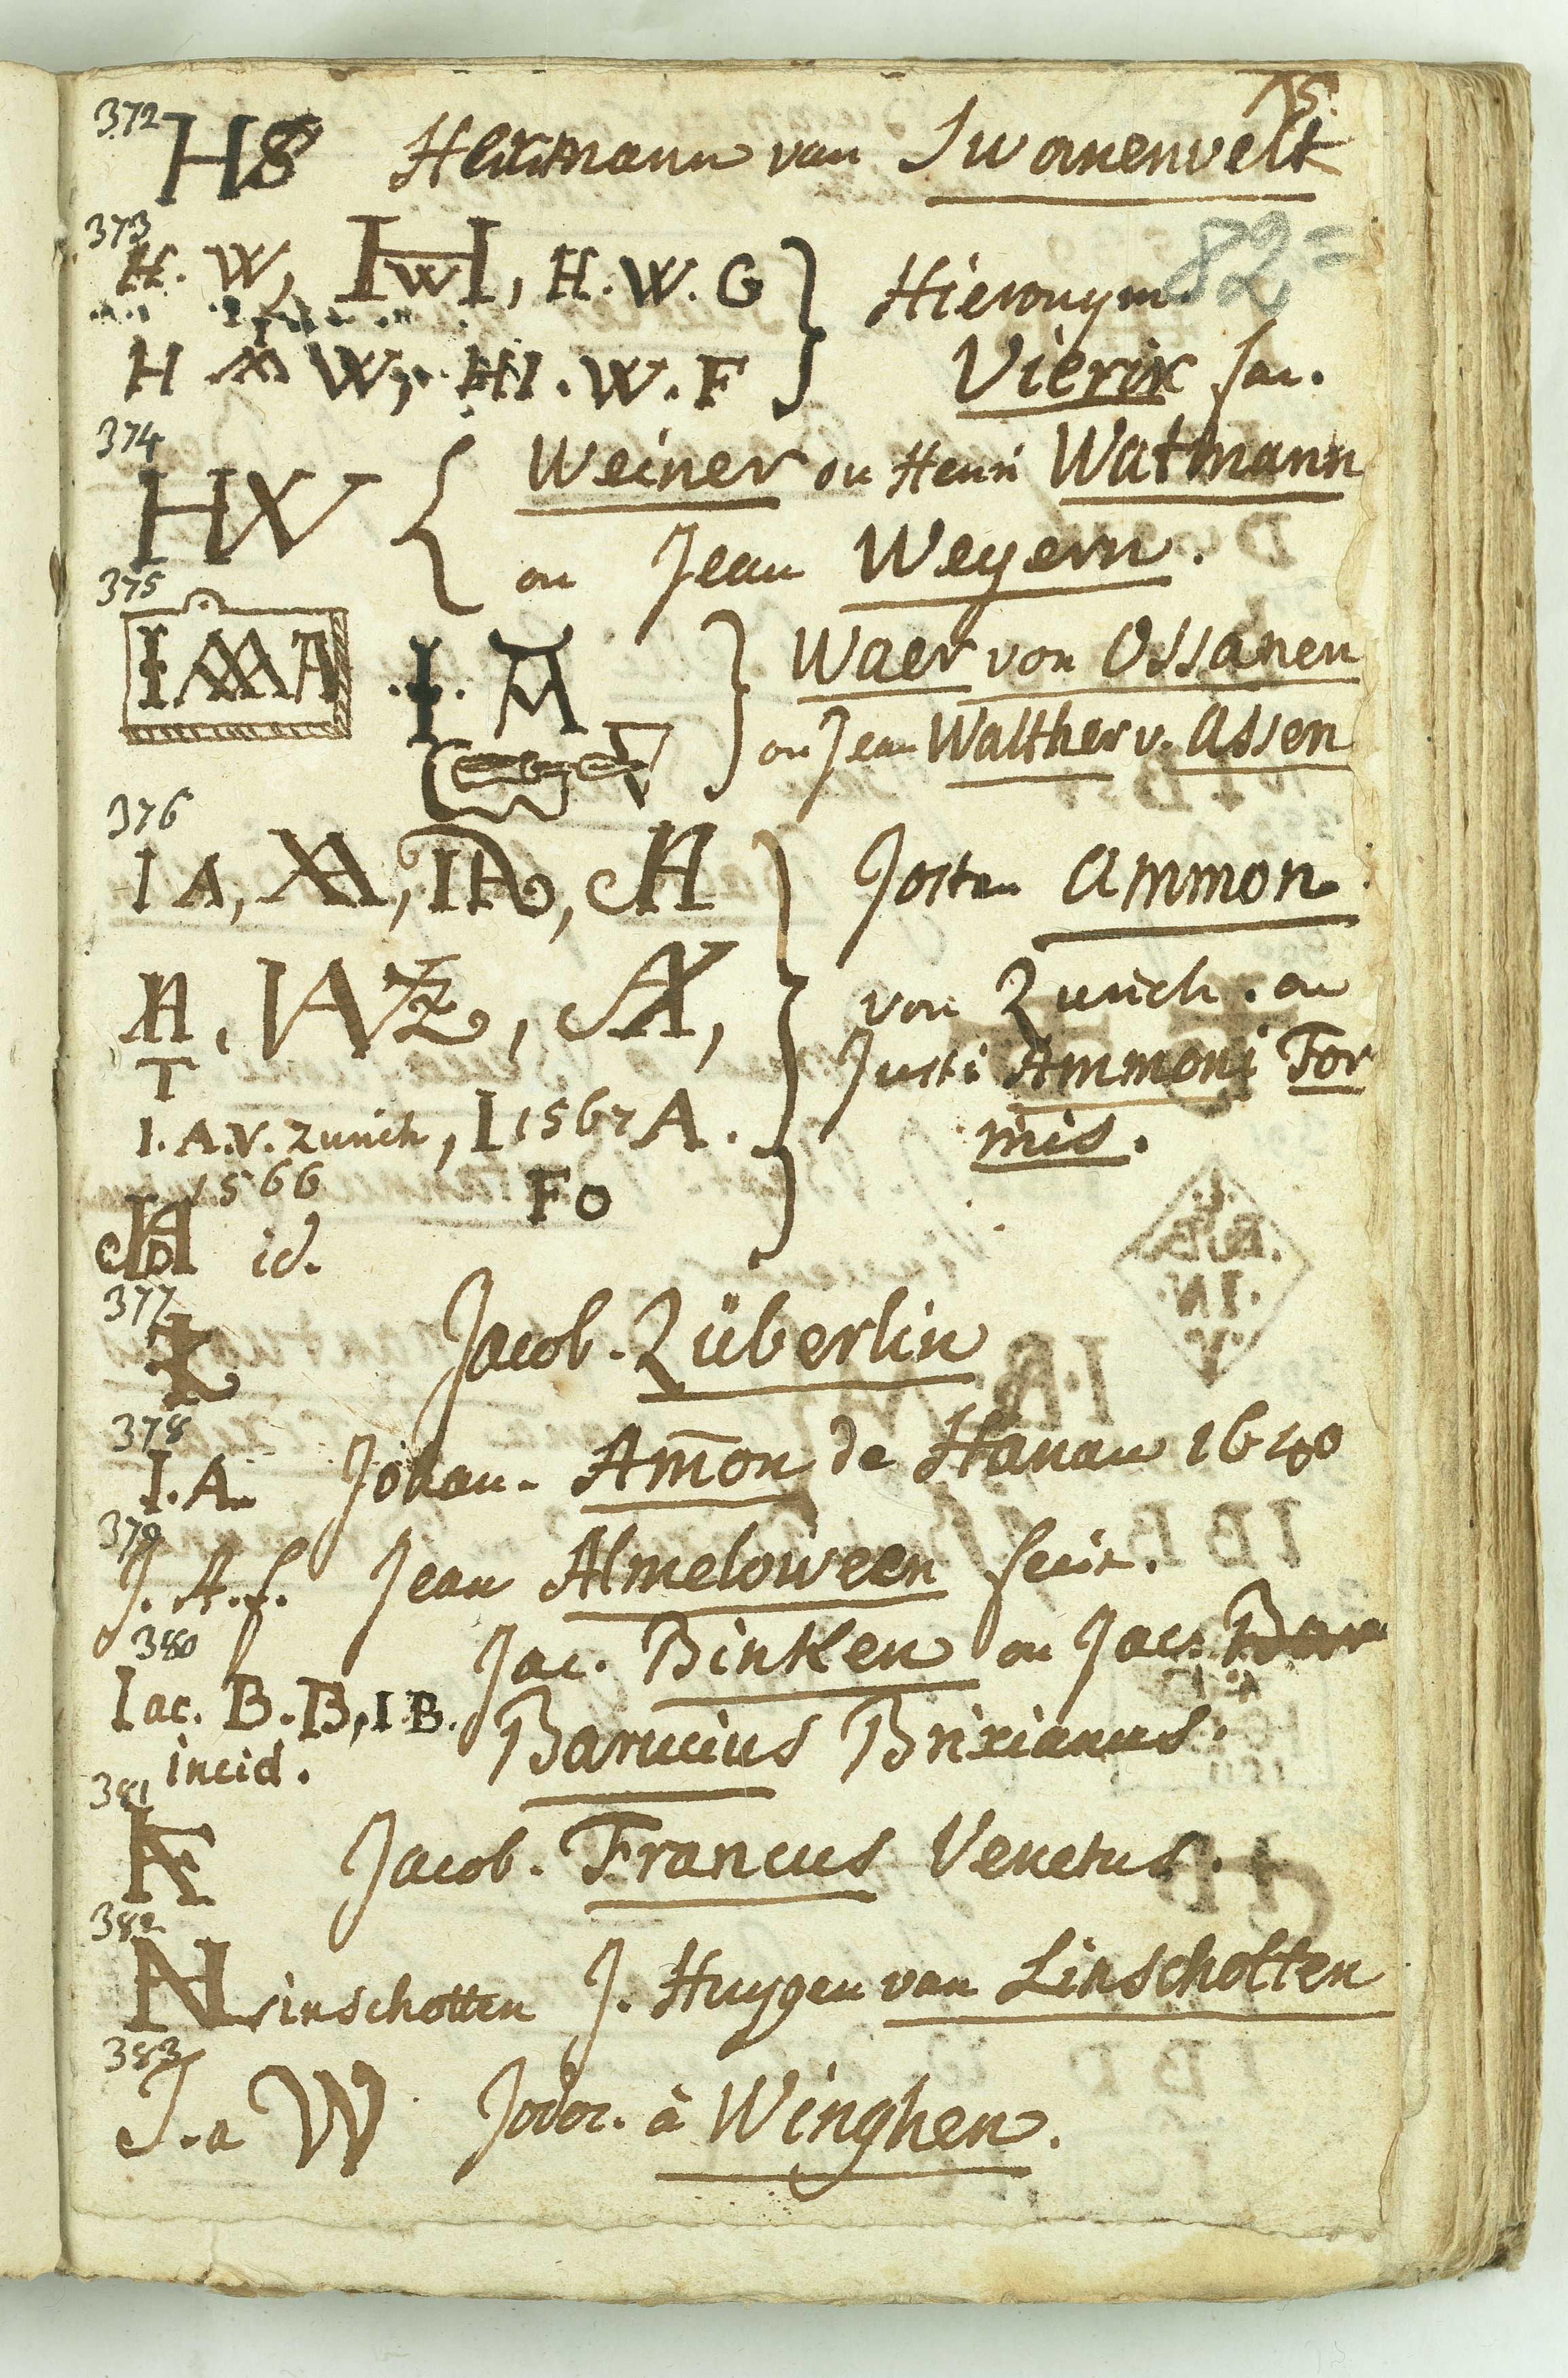 75.
372
HS Hermann van Swanenvelt
82=
373
H. W, IWH, H. W. G Hieronym.
H W, HI. W. F Vierix fac.
374
HW Weiner ou Henri Watmann
ou Jean Weyern.
375
IMA .I. A Waer von Ossanen
ou Jean Walther v. Assen
376
IA, AA, IA, A Jostm Ammon
A, IAVZ, A, von Zurich. ou
T
Justi Ammoni For
I. A. V. Zurich, I 1567 A. mis.
1566 FO
id.
377
Jacob. Züberlin
378
I. A. Johan. Am̄on de Hanau 1640
379
J. A. f. Jean Almeloween fecit.
380
Jac. Binken ou Jac. Bar
Iac. B. B, I B. Barucius Brixianus.
incid.
381
F Jacob. Francus Venetus.
382
Linschotten J. Huygen van Linschotten
383
J. a W Jodoc. à Winghen.